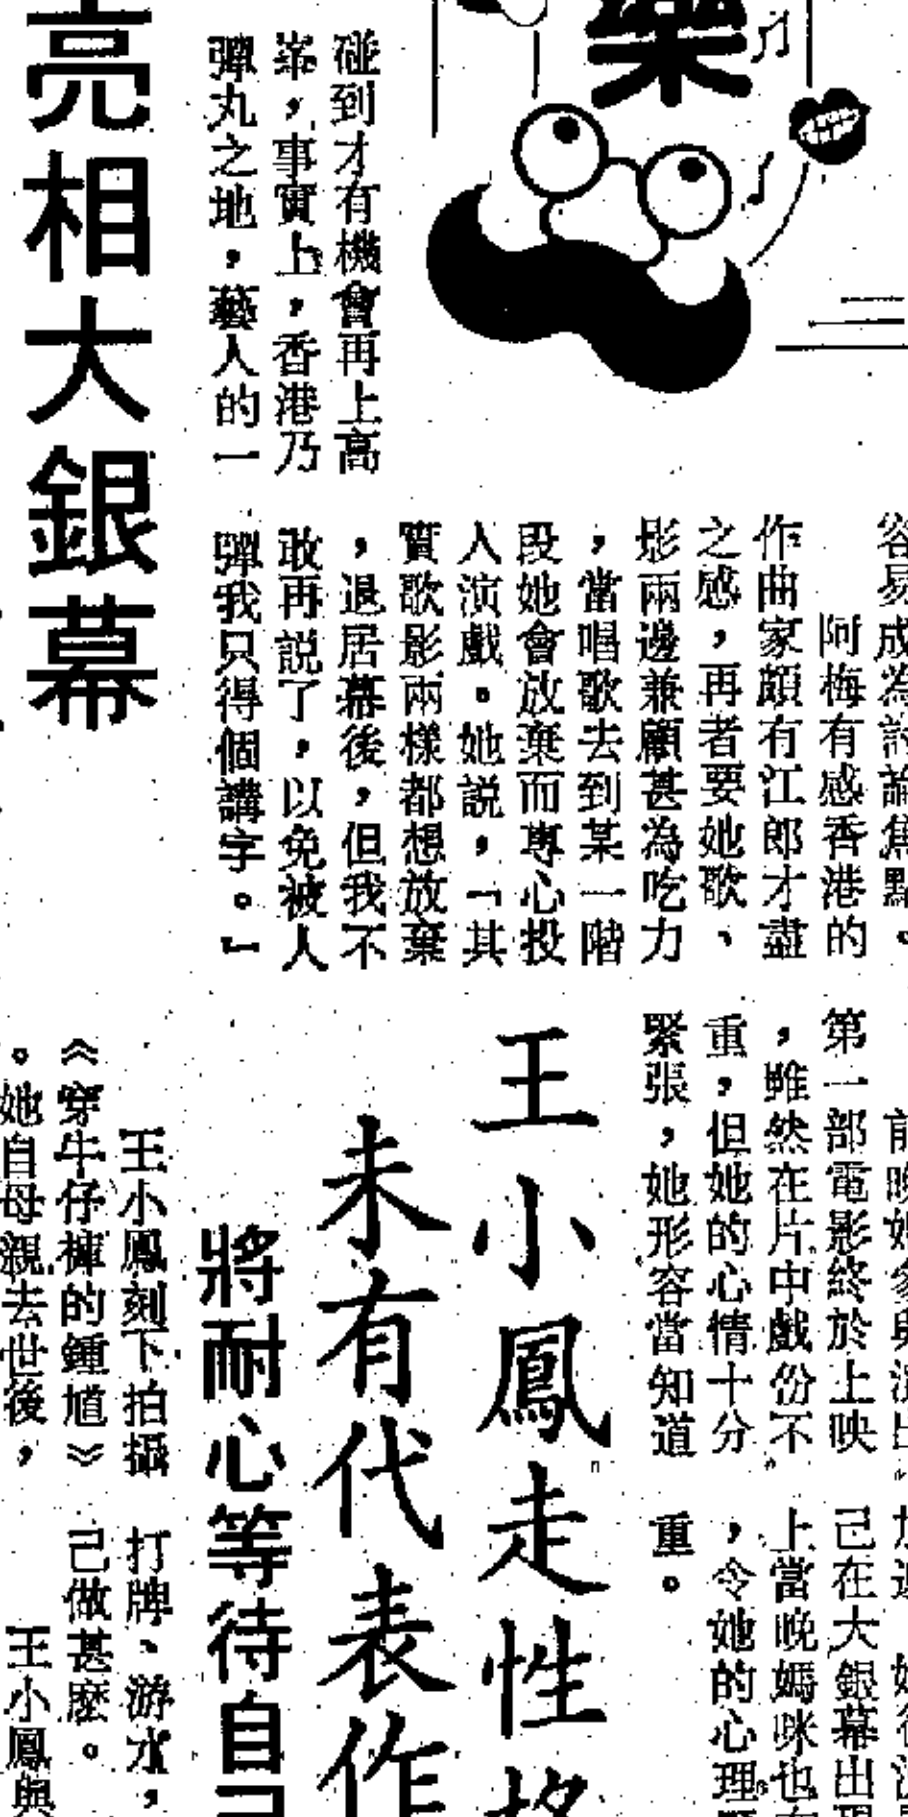 樂
碰到才有機會再上高
峯，事實上，香港乃
彈丸之地，藝人的一
亮相大銀幕
容易成為討論焦點。
阿梅有感香港的
作曲家頗有江郎才盡
之感，再者要她歌、
影兩邊兼顧甚為吃力
，當唱歌去到某一階
段她會放棄而專心投
人演戲。她説，「其
實歌影兩樣都想放棄
，退居幕後，但我不
敢再説了，以免被人
彈我只得個講字。」
前晚她參與演出
第一部電影終於上映
，雖然在片中戲份不
重，但她的心情十分
緊張，她形容當知道
己在大銀幕出
上當晚媽咪也
，令她的心理
重。
王小鳳走性格
未有代表作
將耐心等待自己
王小鳳刻下拍攝
《穿牛仔褲的鍾馗》
。她自母親去世後，
打牌、游水，
己做甚麼。
王小鳳與